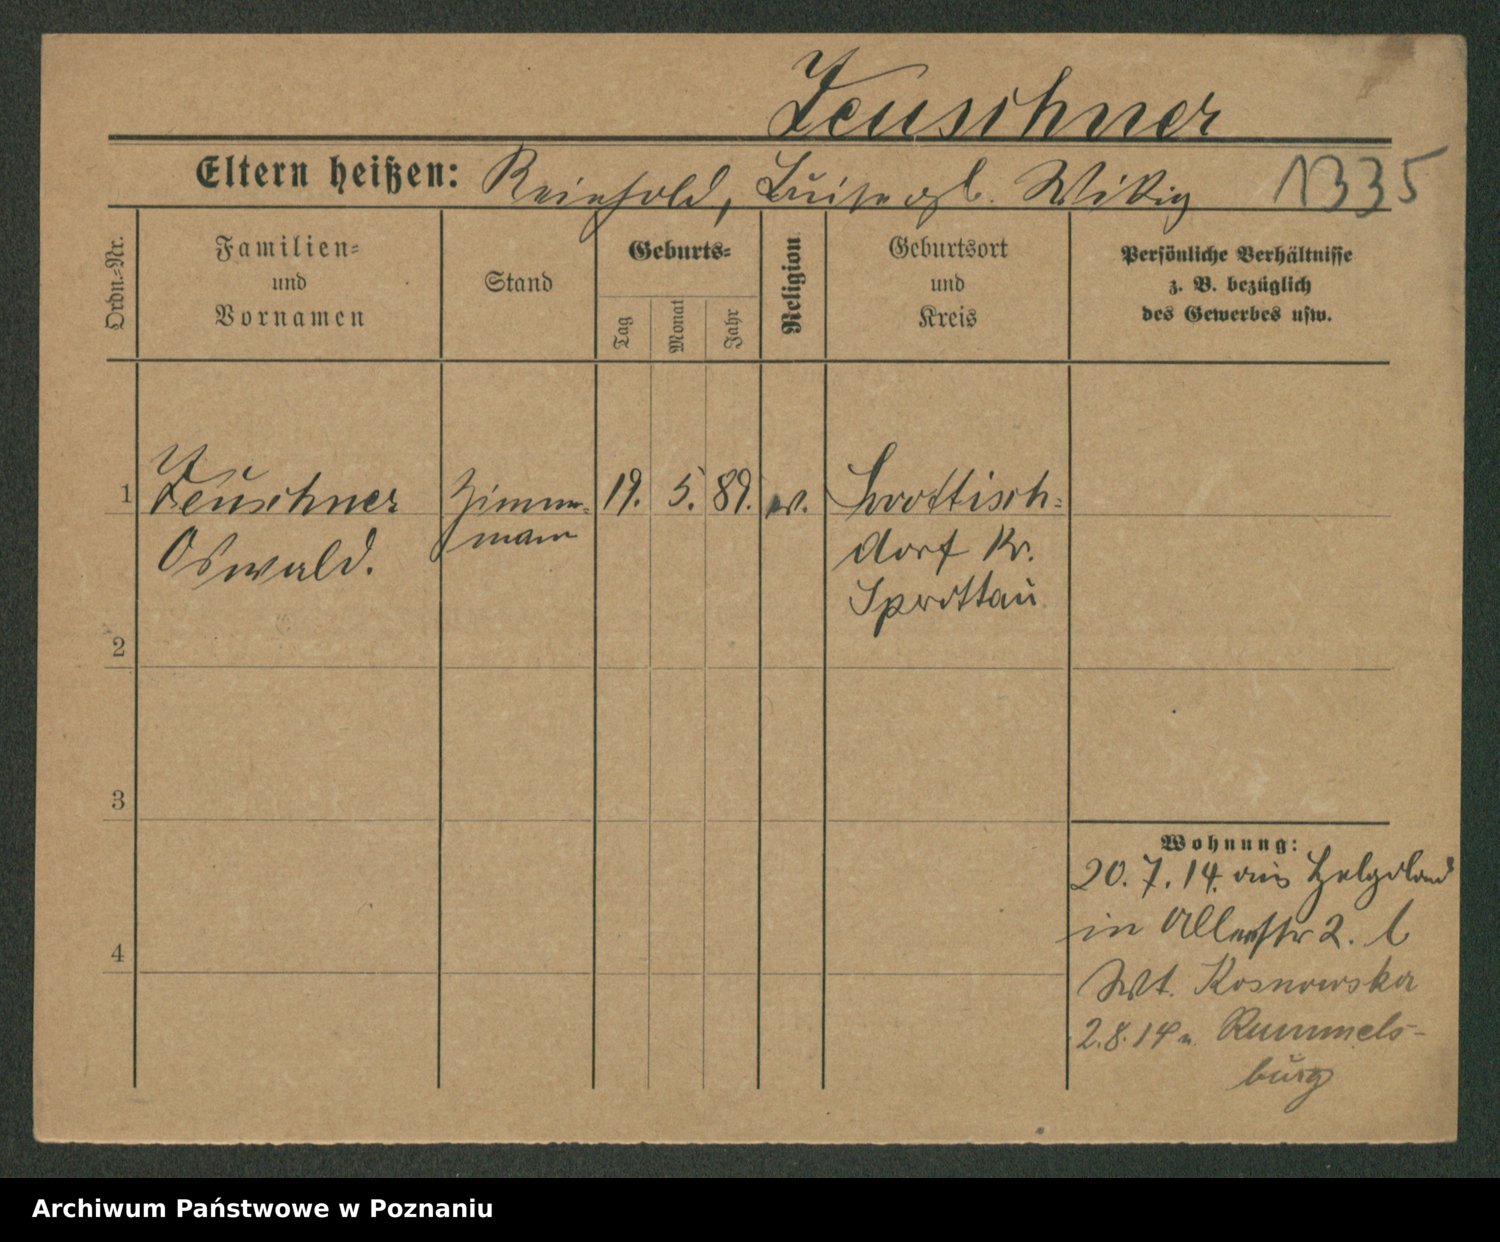 Zeuschner
Eltern heißen: Reinhold, Luise geb. Wittig 1335
Ordn.=Nr.
Familien=
und
Vornamen
Stand
Geburts=
Tag
Monat
Jahr
Religion
Geburtsort
und
Kreis
Persönliche Verhältnisse
z. B. bezüglich
des Gewerbes usw.
1 Zeuschner Zimmer= 19. 5. 89. ev.
Oswald. mann
dorf Kr.
Sprottau
2
3
4
Wohnung:
20. 7. 14. aus Helgoland
in 2. b
Wt. Kosnowska
2.8.14 n. Rummels-
burg
Archiwum Państwowe w Poznaniu